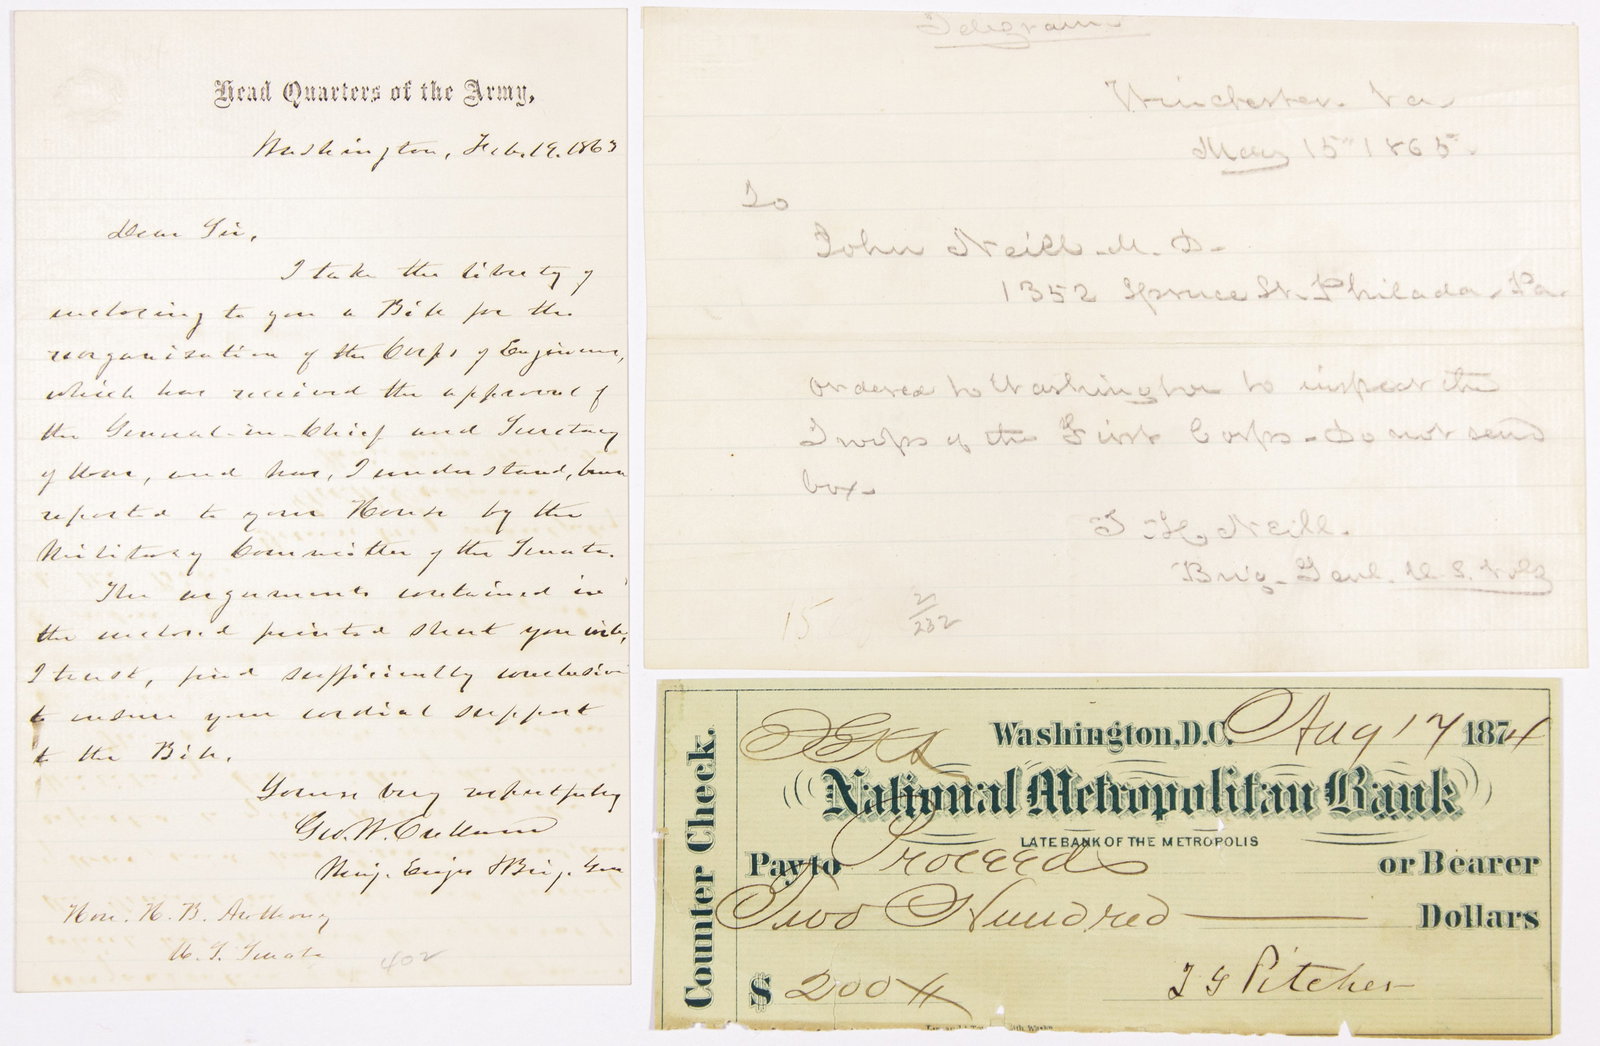 Head Quarters of the Army,
Washington, Feb. 19. 1863
Dear Sir,
I take the liberty of
enclosing to you a Bill for the
reorganization of the Corps of Engineers,
which has received the approval of
the General-in-Chief and Secretary
of War, and has, I understand, been
reported to your House by the
Military Committee of the Senate.
The arguments contained in
the enclosed printed sheet you will,
I trust, find sufficiently conclusive
to ensure your cordial support
to the Bill.
Yours very respectfully
Geo. W. Cullum
Maj. Engrs & Brig. Gen
Hon. H. B. Anthony
U. S. Senate
402
Telegram
Winchester. Va.
May 15" 1865.
To
John Neill M. D.
1352 Spruce St. Philada. Pa.
ordered to Washington to inspect the
Troops of the First Corps - Do not send
box.
T. H. Neill.
Brig. Genl. U. S. Vols
15
2/232
Counter Check.
Washington, D.C. Aug 17 1874
National Metropolitan Bank
LATE BANK OF THE METROPOLIS
Pay to Proceeds or Bearer
Two Hundred Dollars
$ 200
T G Pitcher